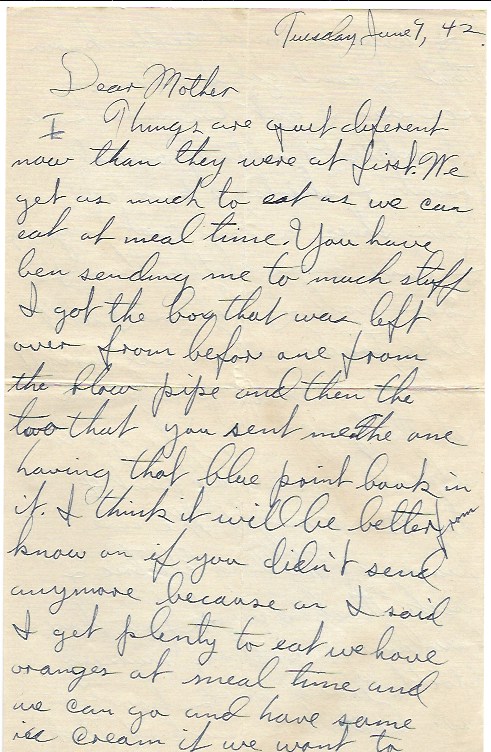 Tuesday, June 9, 42.
Dear Mother
I Things are quit diferent
now than they were at first. We
get as much to eat as we can
eat at meal time. You have
ben sending me to much stuff
I got the box that was left
over from befor one from
the blow pipe and then the
two that you sent me the one
having that blue print book in
it. I think it will be better from
know on if you didn't send
anymore because as I said
I get plenty to eat we have
oranges at meal time and
we can go and have some
ice cream if we want to